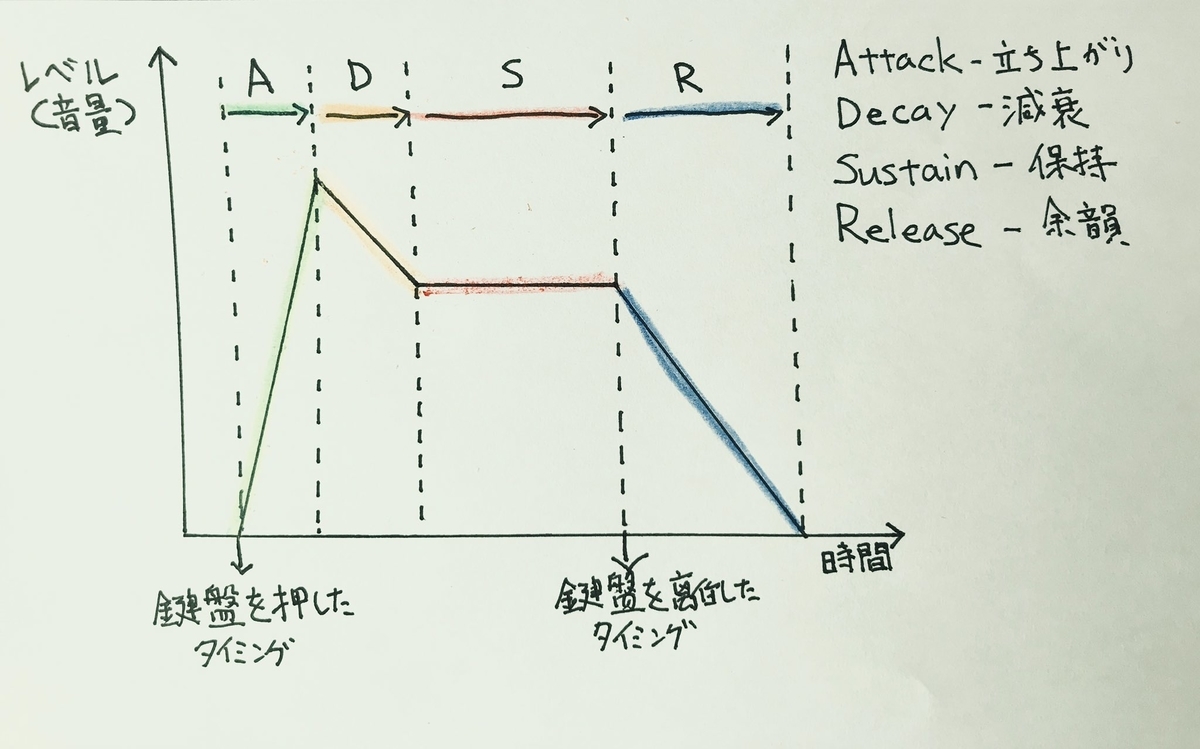 レベル
(音量)
A
D
S
R
Attack - 立ち上がり
Decay - 減衰
Sustain - 保持
Release - 余韻
時間
鍵盤を押した
タイミング
鍵盤を離した
タイミング